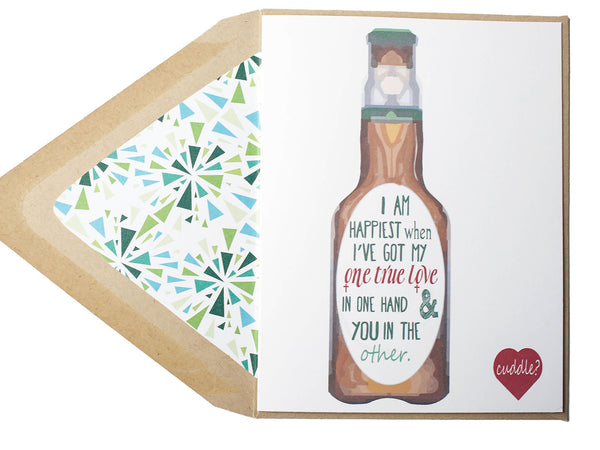 I AM
HAPPIEST when
I'VE GOT MY
one true love
IN ONE HAND &
YOU IN THE
other.
cuddle?